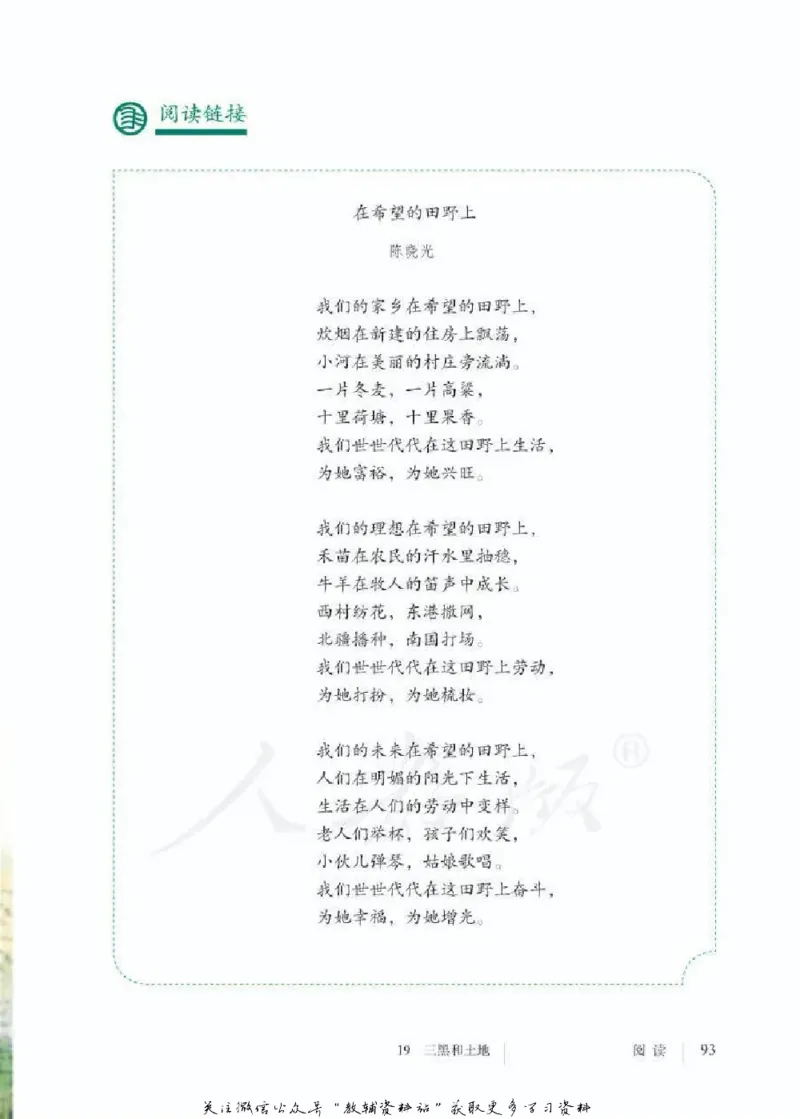 阅读链接
在希望的田野上
陈晓光
我们的家乡在希望的田野上，
炊烟在新建的住房上飘荡，
小河在美丽的村庄旁流淌。
一片冬麦，一片高粱，
十里荷塘，十里果香。
我们世世代代在这田野上生活，
为她富裕，为她兴旺。
我们的理想在希望的田野上，
禾苗在农民的汗水里抽穗，
牛羊在牧人的笛声中成长。
西村纺花，东港撒网，
北疆播种，南国打场。
我们世世代代在这田野上劳动，
为她打扮，为她梳妆。
我们的未来在希望的田野上，
人们在明媚的阳光下生活，
生活在人们的劳动中变样。
老人们举杯，孩子们欢笑，
小伙儿弹琴，姑娘歌唱。
我们世世代代在这田野上奋斗，
为她幸福，为她增光。
人教版®
19 三黑和土地 阅读 93
关注微信公众号"教辅资料站"获取更多学习资料